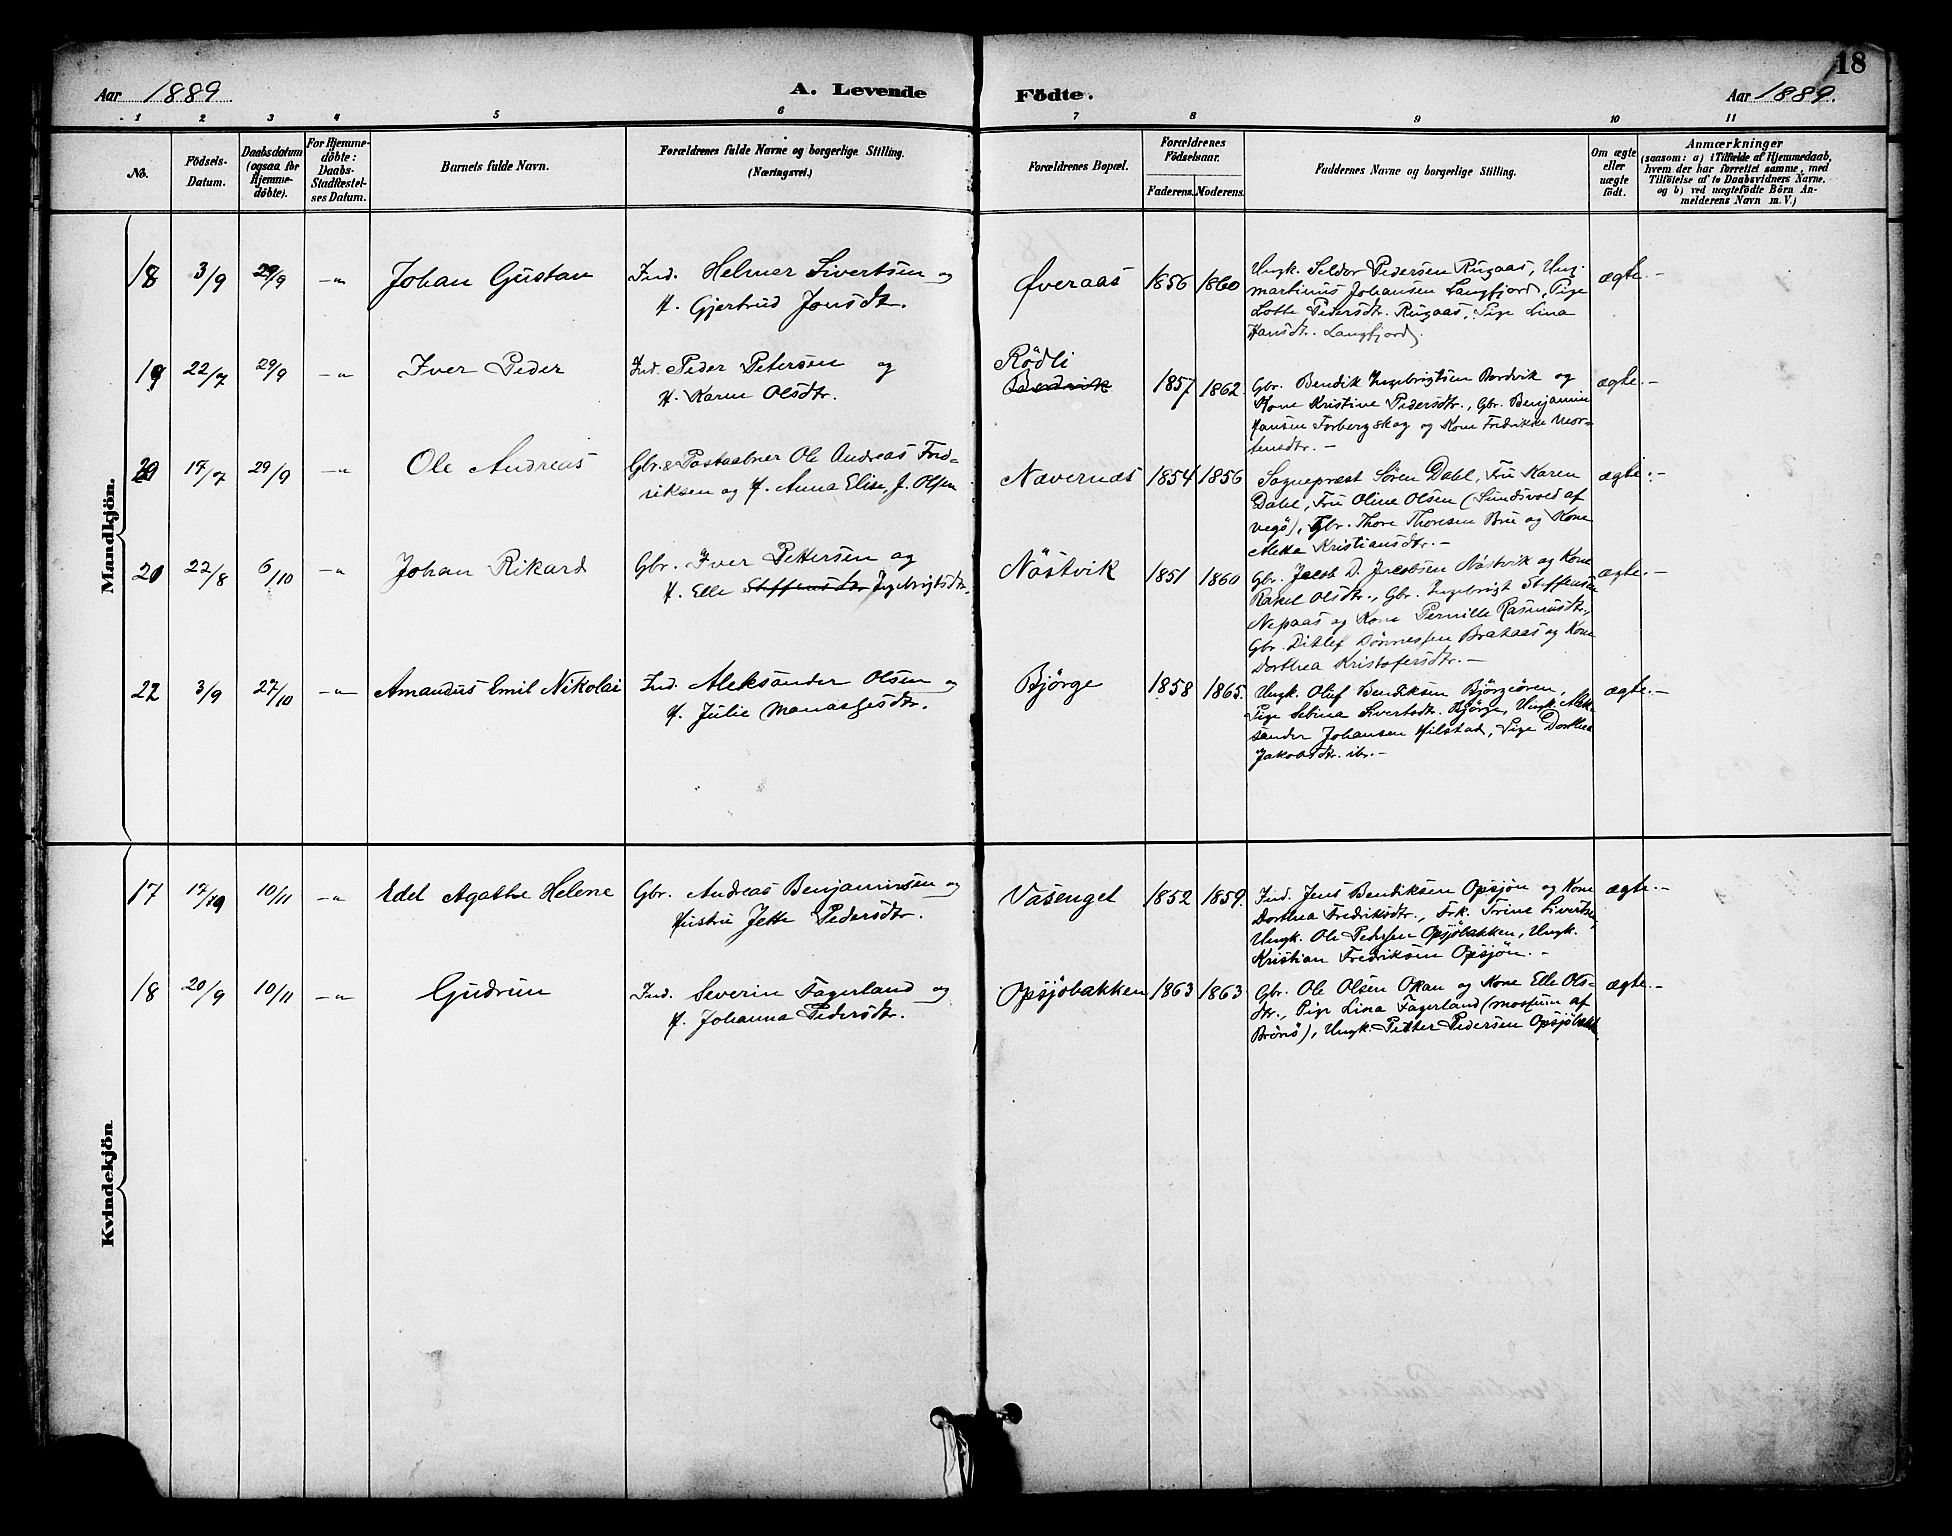 18
Aar 1889
A. Levende Födte.
Aar 1889.
1 2 3 4 5 6 7 8 9 10 11
No.
Födsels-
Datum.
Daabsdatum
(ogsaa for
Hjemme-
döbte).
For Hjemme-
döbte:
Daabs-
Stadfæstel-
ses Datum.
Barnets fulde Navn.
Forældrenes fulde Navne og borgerlige Stilling.
(Næringsvei.)
Forældrenes Bopæl.
Forældrenes
Födselsaar.
Faderens. Moderens.
Faddernes Navne og borgerlige Stilling.
Om ægte
eller
uægte
født.
Anmærkninger
(saasom: a) i Tilfælde af Hjemmedaab,
hvem der har forrettet samme, med
Tilföielse af to Daabsvidners Navne.
og b) ved uægtefödte Börn An-
melderens Navn m. V.)
Mandkjön.
18 3/9 29/9 -"- Johan Gustav Ind. Helmer Sivertsen og
H. Gjertrud Jonsdtr.
Øveraas 1856 1860
Ungk. Seldor Pedersen Rugaas, Ung.
Martinus Johansen Langfjord, Pige
Lotte Pedersdtr. Rugaas, Pige Lina
Hansdtr. Langfjord.
ægte.-
19 22/7 29/9 -"- Iver Peder Ind. Peder Petersen og
H. Karen Olsdtr.
Rödli
1857 1862.
Gbr. Bendik Ingebrigtsen Bordvik og
Kone Kristine Pedersdtr., Gbr. Benjamin
Jansen Forbergskog og Kone Fredrikke Mor-
tensdtr. -
ægte.-
20 17/7 29/9 -"- Ole Andreas Gbr. & Postaabner Ole Andreas Fred-
riksen og H. Anna Elise, J. Olsen
Nævernæs 1854 1856
Sognepræst Sören Dahl, Fru Karen
Dahl, Fru Oline Olsen (Sundsvold af
Vegö), Gbr. Thore Thoresen Bru og Kone
Aletta Kristiansdtr. -
ægte.-
21 22/8 6/10 -"- Johan Rikard Gbr. Iver Pettersen og
H. Elle Steffensdtr Ingebrigtsdtr.
Nöstvik 1851 1860
Gbr. Jacob D. Jacobsen Nöstvik og Kone
Rakel Olsdtr., Gbr. Ingebrigt Steffensen
Nepaas og Kone Pernille Rasmusdtr.,
Gbr. Ditlef Dönnessen Brataas og Kone
Dorthea Kristofersdtr. -
ægte.-
22 3/9 27/10 -"- Amandus Emil Nikolai Ind. Aleksander Olsen og
H. Julie Manassesdtr.
Björge 1858 1865.
Ungk. Oluf Bendiksen Björgeören,
Pige Sebina Sivertsdtr. Björge, Ungk. Alek-
sander Johansen Hilstad, Pige Dorthea
Jakobsdtr. ibr. -
ægte.-
Kvindekjön.
17 17/10 10/11 -"- Edel Agathe Helene Gbr. Andreas Benjaminsen og
Hustru Jette Pedersdtr.
Vasenget 1852 1859.
Ind. Jens Bendiksen Opsjön og Kone
Dorthea Fredriksdtr., Frk. Trine Sivertsen,
Ungk. Ole Pedersen Opsjöbakken, Ungk.
Kristian Fredriksen Opsjön. -
ægte.-
18 20/9 10/11 -"- Gudrun Ind. Severin Fagerland og
H. Johanna Pedersdtr.
Opsjöbakken 1863 1863
Gbr. Ole Olsen Okan og Kone Elle Ols-
dtr., Pige Lina Fagerland (Mosheim af
Brönö), Ungk. Petter Pedersen Opsjöbakk.
ægte.-